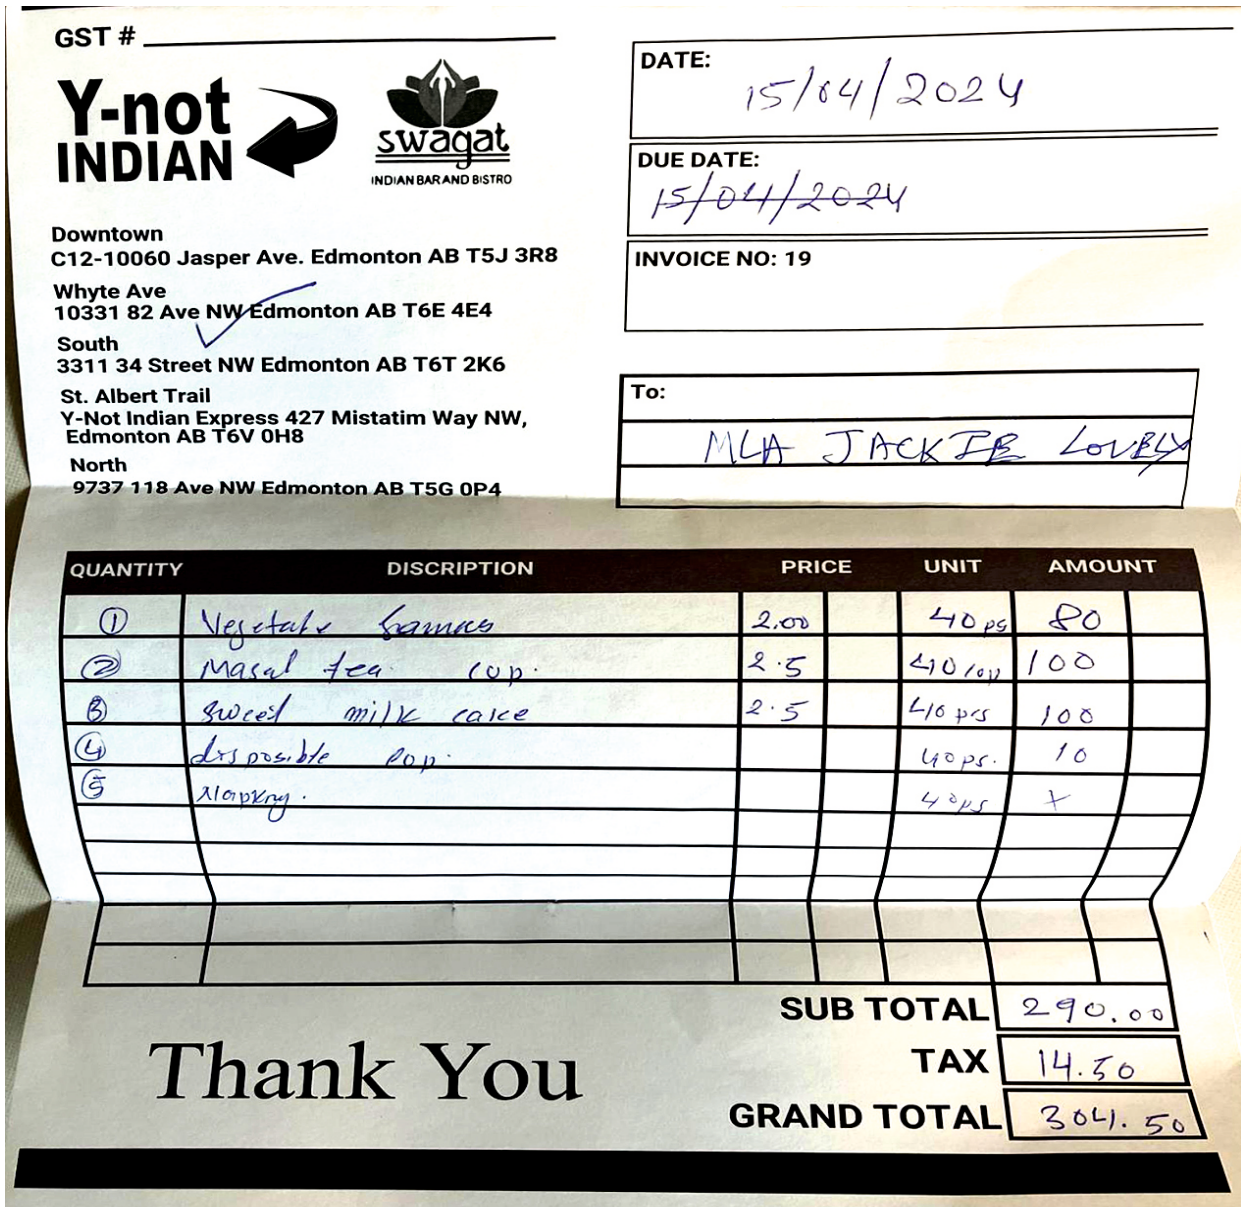 GST #
Y-not
INDIAN
swagat
INDIAN BAR AND BISTRO
Downtown
C12-10060 Jasper Ave. Edmonton AB T5J 3R8
Whyte Ave
10331 82 Ave NW Edmonton AB T6E 4E4
South
3311 34 Street NW Edmonton AB T6T 2K6
St. Albert Trail
Y-Not Indian Express 427 Mistatim Way NW,
Edmonton AB T6V 0H8
North
9737 118 Ave NW Edmonton AB T5G 0P4
DATE:
15/04/2024
DUE DATE:
15/04/2024
INVOICE NO: 19
To:
MLA JACKIE LOVELY
QUANTITY DISCRIPTION PRICE UNIT AMOUNT
1 Vegetable 2.00 40 ps 80
2 Masal tea cup. 2.5 40 cup 100
3 Sweet milk cake 2.5 40 pcs 100
4 disposible 40 ps. 10
5 40ps x
SUB TOTAL 290.00
TAX 14.50
GRAND TOTAL 304.50
Thank You